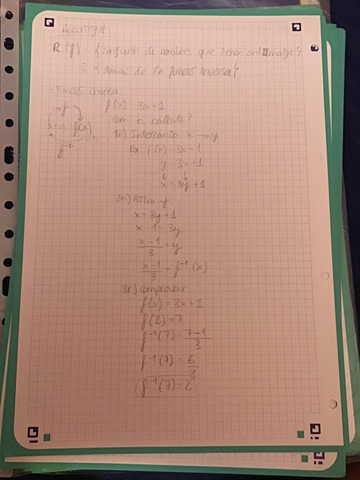 R(f) {conjunt de nombres que tenen
{domini de la funció inversa}
Funció inversa
f(x) = 3x+1
com es calcula?
1r) Intercanvio x → y
Ex: f(x) = 3x+1
y = 3x+1
x = 3y+1
2n) Aïllar y:
x = 3y+1
x-1 = 3y
x-1/3 = y
x-1/3 = f⁻¹(x)
3r) comprovar
f(x) = 3x+1
f(2) = 7
f⁻¹(7) = 7-1/3
f⁻¹(7) = 6/3
f⁻¹(7) = 2
f
x f(x)
f⁻¹